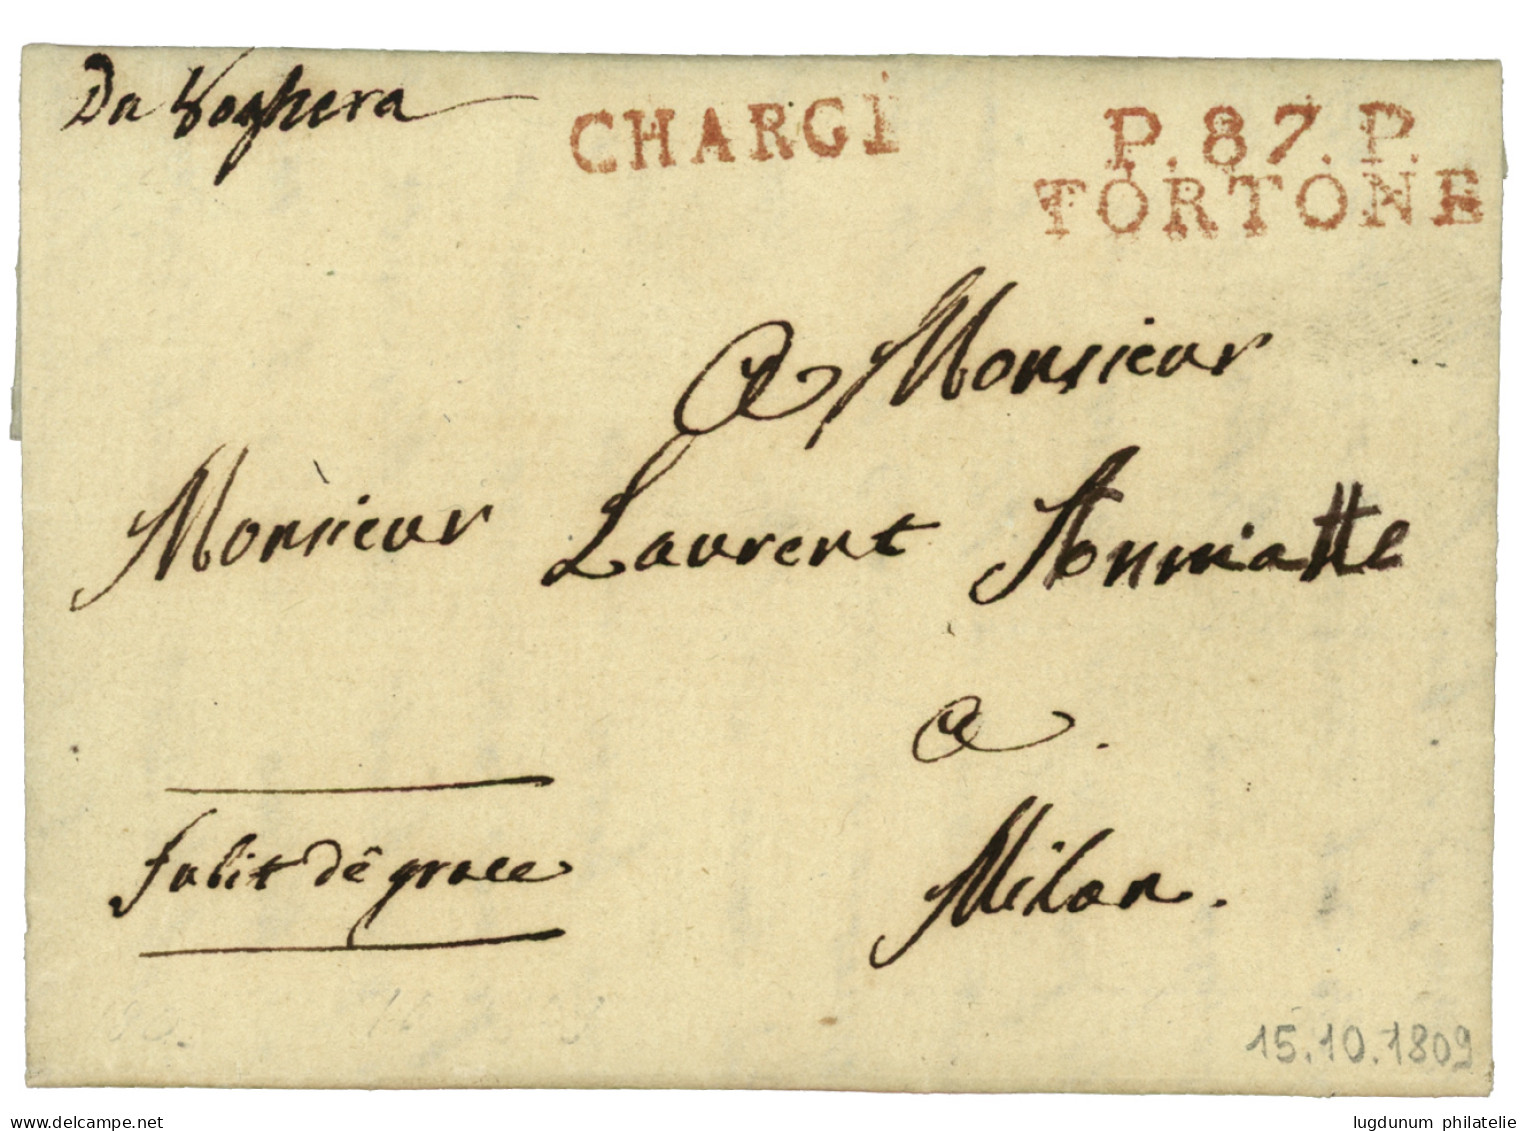 Da Voghera
CHARGÉ
P. 87. P.
TORTONE
A Monsieur
Monsieur Laurent
a
Milan.
subit dê grace
15.10.1809
delcampe.net
lugdunum philatelie